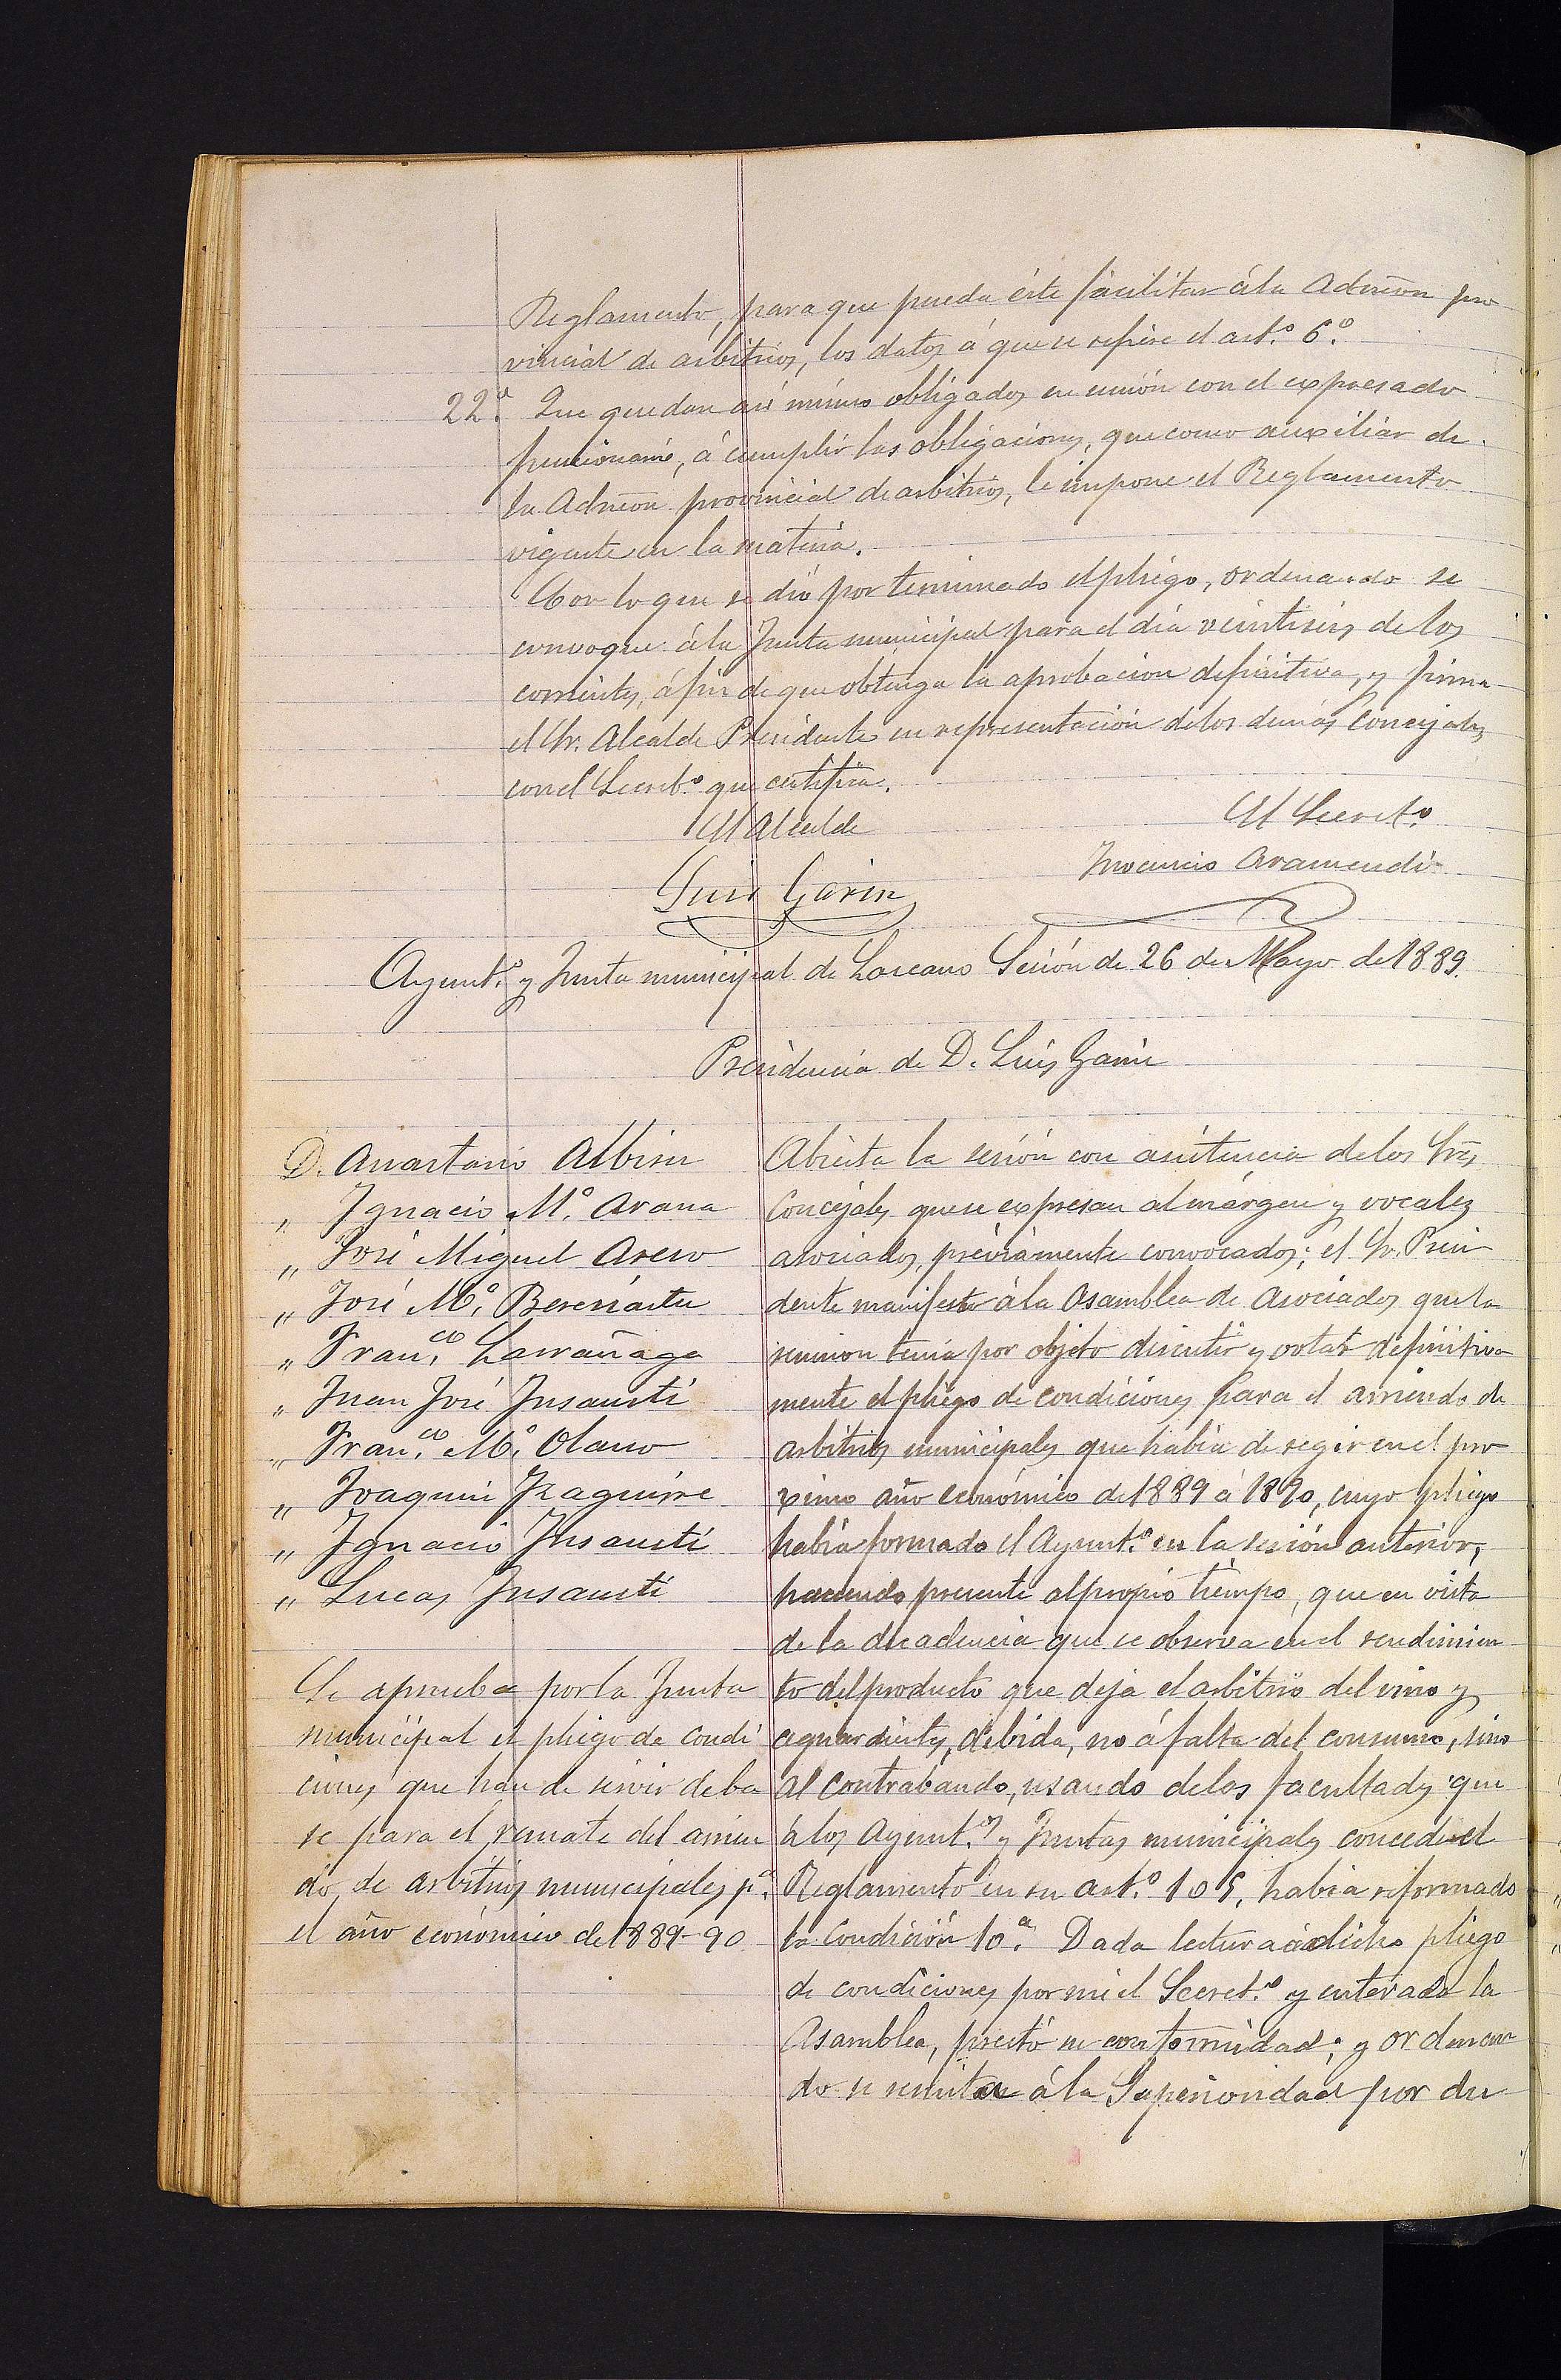 Reglamento, para que pueda éste facilitar á la Admeon pro
vincial de arbitrios, los datos á que se refiere el art.º 6.º
22.ª Que quedan asi mismo obligados en unión con el expresado
funcionario, á cumplir las obligaciones, que como auxiliar de
la Admeon provincial de arbitrios, le impone el Reglamento
vigente en la materia.
Con lo que se dió por terminado el pliego, ordenando se
convoque á la Junta municipal para el dia veintiseis de los
corrientes, á fin de que obtenga la aprobacion definitiva, y firma
el Sr. Alcalde Presidente en representación de los demás concejales,
con el Secret.º que certifica.
El Alcalde
El Secret.º
Luis Garin
Inocencio Aramendi
Ayunt.º y Junta municipal de Lazcano Sesión de 26 de Mayo de 1889.
Presidencia de D. Luis Garin
D. Anastasio Albisu
" Ignacio M.º Arana
" José Miguel Areso
" José M.º Berasiartu
" Fran.co Larrañaga
" Juan José Insausti
" Fran.co M.º Olano
" Joaquin Izaguirre
" Ignacio Insausti
" Lucas Insausti
Se aprueba por la Junta
municipal el pliego de condi
ciones que han de servir de ba
se para el remate del arrien
do, de arbitrios municipales p.ª
el año económico de 1889-90
Abierta la sesión con asistencia de los Sres
Concejales que se expresan al márgen y vocales
asociados, préviamente convocados; el Sr. Presi
dente manifestó á la Asamblea de Asociados que la
reunion tenia por objeto discutir y votar definitiva
mente el pliego de condiciones para el arriendo de
arbitrios municipales que habia de regir en el pro
ximo año económico de 1889 á 1890, cuyo pliego
habia formado el Ayunt.º en la sesión anterior,
haciendo presente al propio tiempo, que en vista
de la decadencia que se observa en el rendimien
to del producto que deja el arbitrio del vino y
aguardientes, debida, no á falta del consumo, sino
al contrabando, usando de los facultades que
á los Ayunt.os y Juntas municipales concede el
Reglamento en su art.º 105, habia reformado
la Condición 10.ª Dada lectura á dicho pliego
de condiciones por mi el Secret.º y enterada la
Asamblea, prestó su conformidad; y ordenan
do se remita á la Superioridad por du